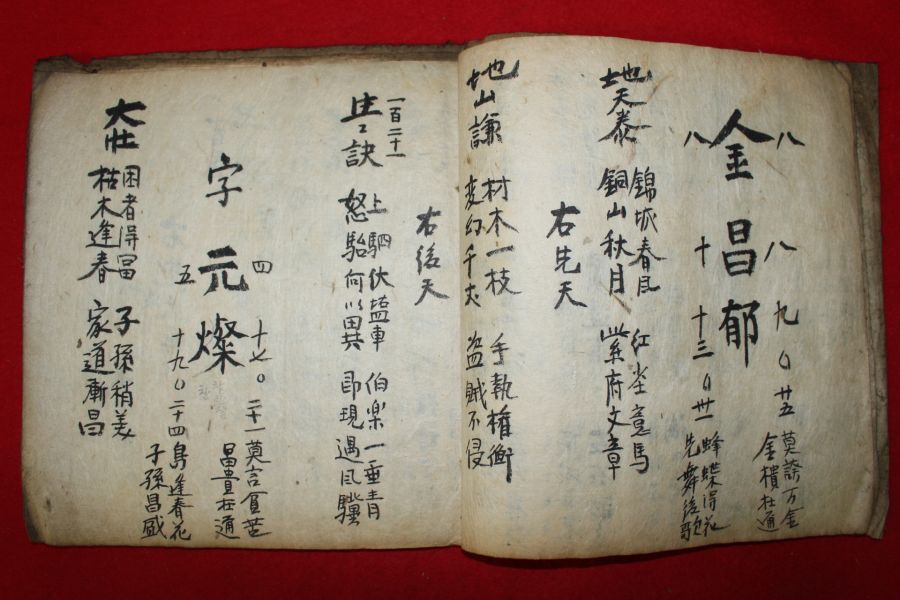 八 八 九 〇 廿五 莫誇万金
金櫃在通
金昌郁
八 十 十三 〇 卅一 蜂蝶得花
先舞後歌
地天泰
錦城春風 紅塵意馬
銅山秋月 紫府文章
右先天
地山謙
材木一枝 手執權衡
変幻千丈 盗賊不侵
右後天
一百二十一
訣
上駟伏塩車 伯楽一垂青
怒駘何以異 即現遇風驥
字元燦
四 十七 〇 二十一 莫言貧苦
富貴在通
五 十九 〇 二十四 島逢春花
子孫昌盛
大壯
困者得冨 子孫稍美
枯木逢春 家道漸昌